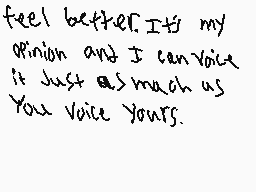 feel better. It's my
opinion and I can voice
it Just as much as
You voice yours.